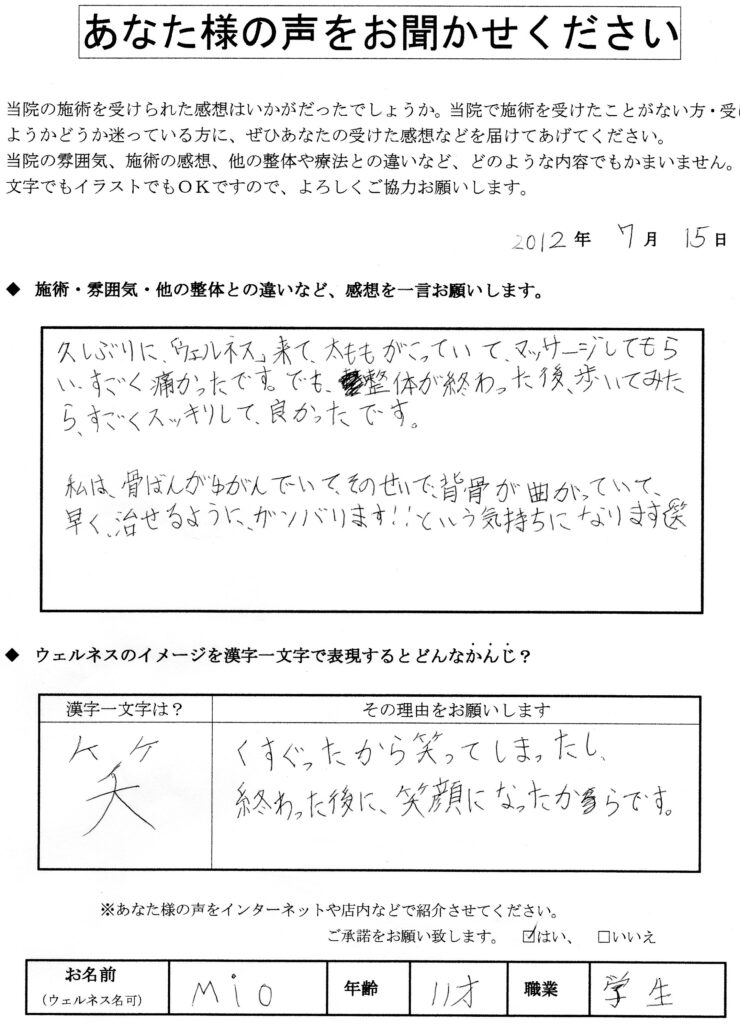 あなた様の声をお聞かせください
当院の施術を受けられた感想はいかがだったでしょうか。当院で施術を受けたことがない方・受け
ようかどうか迷っている方に、ぜひあなたの受けた感想などを届けてあげてください。
当院の雰囲気、施術の感想、他の整体や療法との違いなど、どのような内容でもかまいません。
文字でもイラストでもＯＫですので、よろしくご協力お願いします。
2012年 7月 15日
◆ 施術・雰囲気・他の整体との違いなど、感想を一言お願いします。
久しぶりに、「ウェルネス」来て、太ももがこっていて、マッサージしてもら
い、すごく痛かったです。でも、整体が終わった後、歩いてみた
ら、すごくスッキリして、良かったです。
私は、骨ばんがゆがんでいて、そのせいで、背骨が曲がっていて、
早く、治せるように、ガンバリます!!という気持ちになります(笑)
◆ ウェルネスのイメージを漢字一文字で表現するとどんなかんじ？
漢字一文字は？ その理由をお願いします
笑
くすぐったから笑ってしまったし、
終わった後に、笑顔になったからです。
※あなた様の声をインターネットや店内などで紹介させてください。
ご承諾をお願い致します。 ☑はい、 □いいえ
お名前 Mio 年齢 11才 職業 学生
（ウェルネス名可）